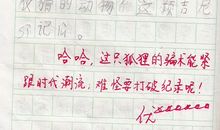 狡猾的动物作这项吉尼
斯记低。
哈哈，这只狐狸的骗术能紧
跟时代潮流，难怪要打破纪录呢！
优